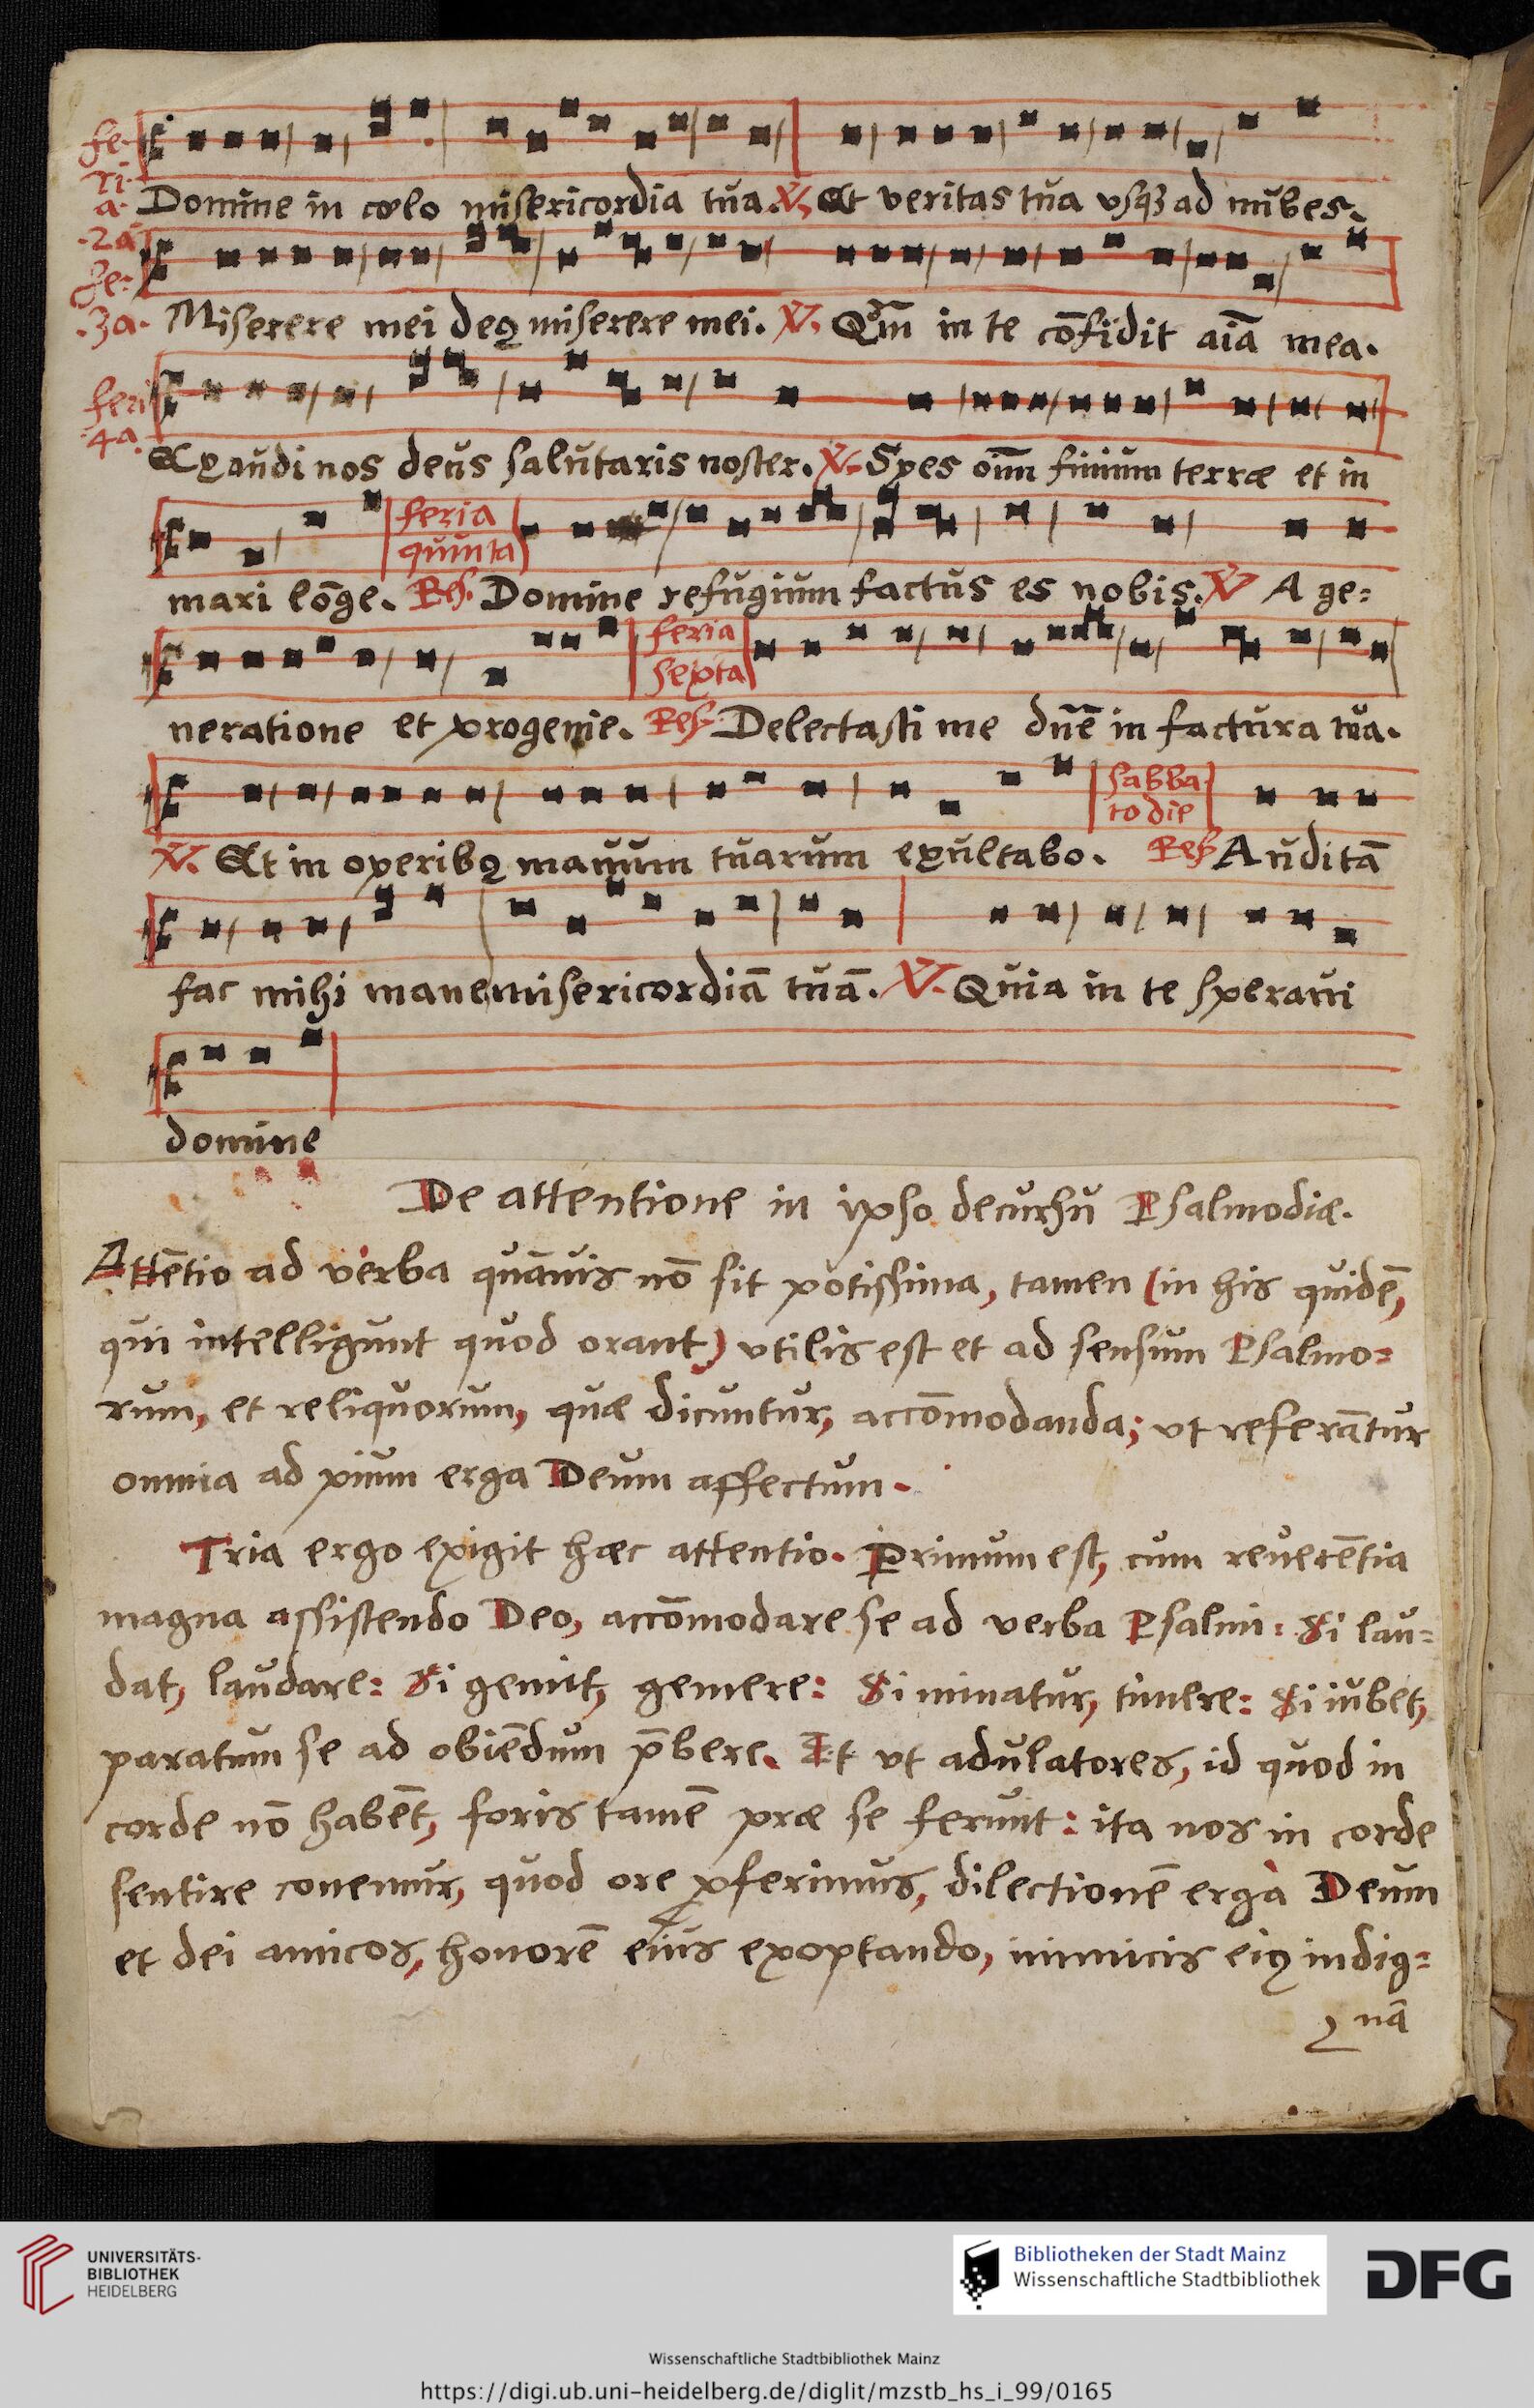 fe-
ri-
a-
.2a
Domine in cœlo misericordia tua. V. Et veritas tua vsqꝫ ad nubes.
fe-
.3a. Miserere mei deꝰ miserere mei. V. Qm̄ in te cōfidit aīa mea.
feri
4a.
Exaudi nos deus salutaris noster. V. Spes oīm finium terræ et in
feria
quinta
mari lōge. Res. Domine refugium factus es nobis. V A ge=
feria
sexta
neratione et progenie. Res. Delectasti me dn̄e in factura tua.
sabba
to die
V. Et in operibꝰ manuum tuarum exultabo. Res Auditā
fac mihi mane misericordiā tuā. V. Quia in te speraui
domine
De attentione in ipso decursu Psalmodiæ.
Attētio ad verba quāuis nō sit potissima, tamen (in his quidē,
qui intelligunt quod orant) vtilis est et ad sensum Psalmo=
rum, et reliquorum, quæ dicuntur, accōmodanda; vt referātur
omnia ad pium erga Deum affectum.
Tria ergo exigit hæc attentio. Primum est, cum reuerētia
magna assistendo Deo, accōmodare se ad verba Psalmi: Si lau=
dat, laudare: Si gemit, gemere: Si minatur, timere: Si iubet,
paratum se ad obiēdum p̄bere. Et vt adulatores, id quod in
corde nō habēt, foris tamē præ se ferunt: ita nos in corde
sentire conemur, quod ore ꝓferimus, dilectionē ergà Deum
et dei amicos, honorē eius exoptando, inimicis eiꝰ indig=
nā
UNIVERSITÄTS-
BIBLIOTHEK
HEIDELBERG
Bibliotheken der Stadt Mainz
Wissenschaftliche Stadtbibliothek
DFG
Wissenschaftliche Stadtbibliothek Mainz
https://digi.ub.uni-heidelberg.de/diglit/mzstb_hs_i_99/0165